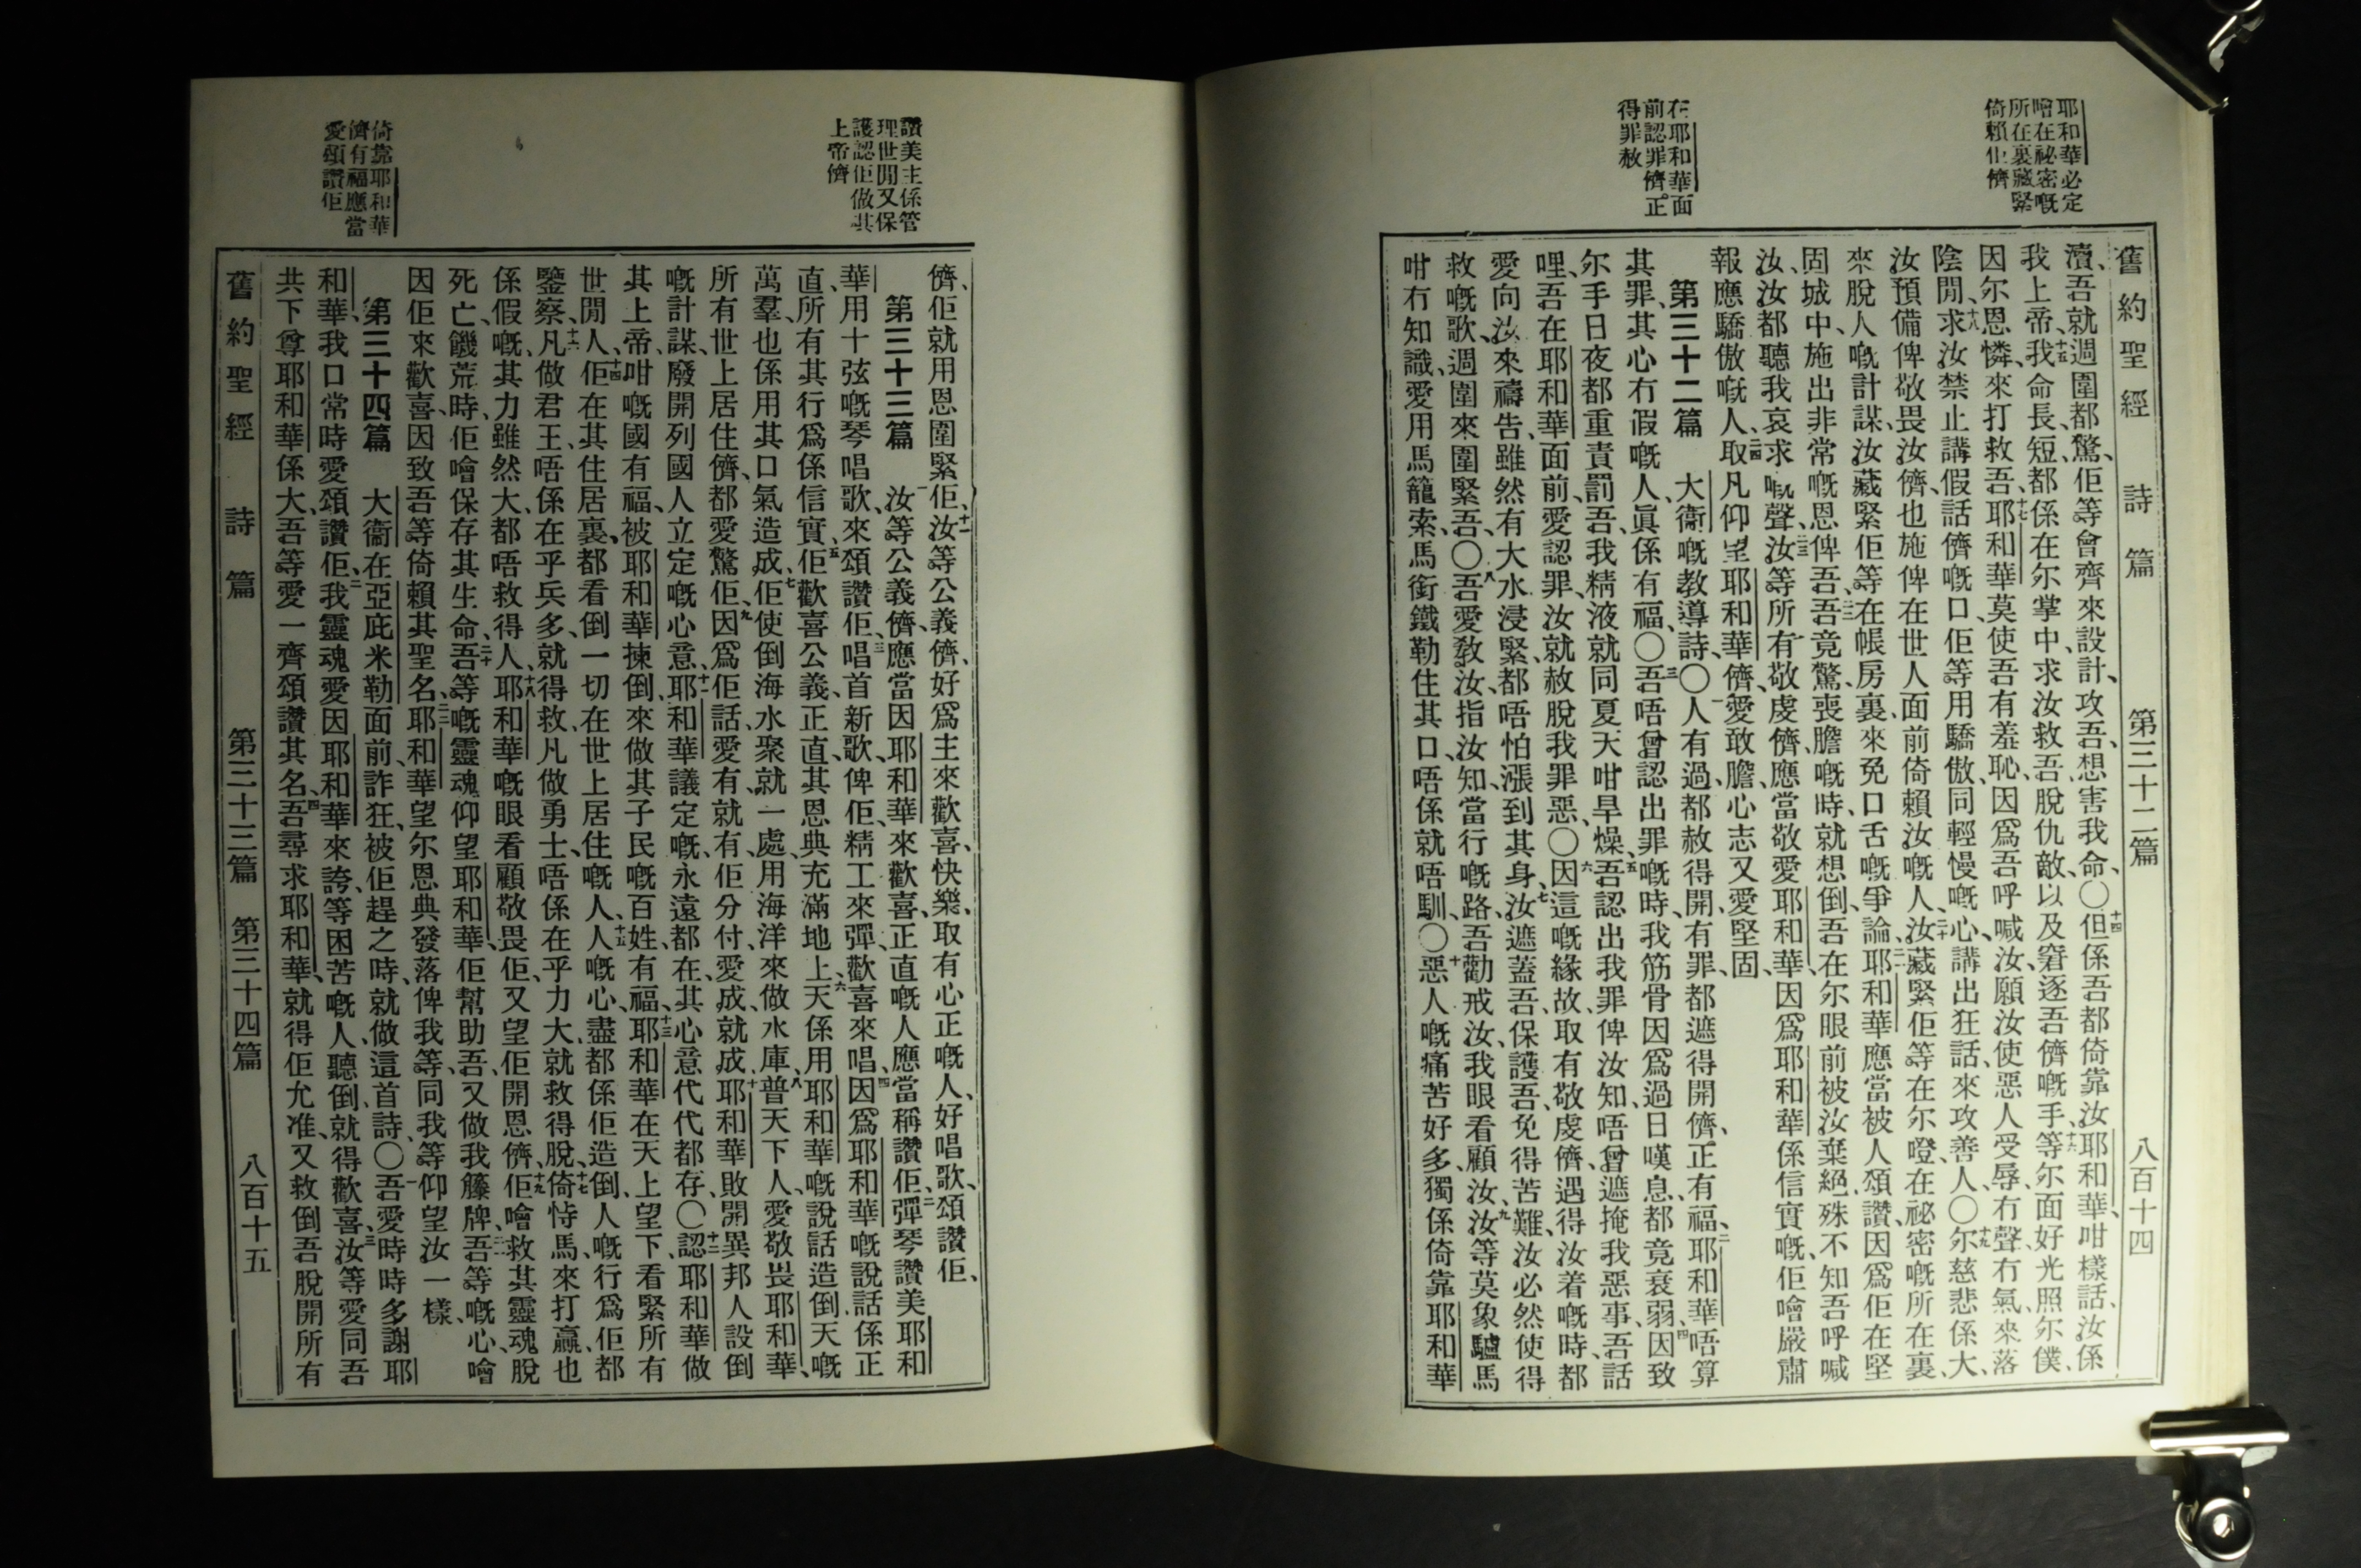 耶和華必定
噲在祕密嘅
所在裏藏緊
倚賴佢儕
在耶和華面
前認罪儕正
得罪赦
舊約聖經 詩篇 第三十二篇 八百十四
瀆、吾就週圍都驚、佢等曾齊來設計、攻吾、想害我命、〇十四但係吾都倚靠汝耶和華、咁樣話、汝係
我上帝、十五我命長、短、都係在尔掌中、求汝救吾、脫仇敵、以及窘逐吾儕嘅手、十六等尔面好光照尔僕、
因尔恩憐、來打救吾、十七耶和華莫使吾有羞恥、因爲吾呼喊汝、願汝使惡人受辱、冇聲、冇氣、來落
陰間、十八求汝禁止講假話儕嘅口、佢等用驕傲、同輕慢嘅心、講出狂話、來攻善人、〇十九尔慈悲係大、
汝預備俾敬畏汝儕、也施俾在世人面前倚賴汝嘅人、二十汝藏緊佢等在尔噔、在祕密嘅所在裏、
來脫人嘅計謀、汝藏緊佢等在帳房裏、來免口舌嘅爭論、二一耶和華應當被人頌讚、因爲佢在堅
固城中、施出非常嘅恩俾吾、二二吾竟驚、喪膽嘅時、就想倒、吾在尔眼前被汝棄絕、殊不知吾呼喊
汝、汝都聽我哀求嘅聲、二三汝等所有敬虔儕、應當敬愛耶和華、因爲耶和華係信實嘅、佢噲嚴肅
報應驕傲嘅人、二四取凡仰望耶和華儕、愛敢膽、心志又愛堅固、
第三十二篇 大衞嘅教導詩、〇一人有過、都赦得開、有罪、都遮得開儕、正有福、二耶和華唔算
其罪、其心冇假嘅人、眞係有福、〇三吾唔曾認出罪嘅時、我筋骨因爲過日嘆息、都竟衰弱、四因致
尔手日夜都重責罰吾、我精液就同夏天咁旱燥、五吾認出我罪俾汝知、唔曾遮掩我惡事、吾話
哩、吾在耶和華面前、愛認罪、汝就赦脫我罪惡、〇六因這嘅緣故、取有敬虔儕、遇得汝着嘅時、都
愛向汝來禱告、雖然有大水浸緊、都唔怕漲到其身、七汝遮蓋吾、保護吾、免得苦難、汝必然使得
救嘅歌、週圍來圍緊吾、〇八吾愛教汝、指汝知、當行嘅路、吾勸戒汝、我眼看顧汝、九汝等莫象驢馬
咁冇知識、愛用馬籠索、馬銜鐵勒住其口、唔係就唔馴、〇十惡人嘅痛苦好多、獨係倚靠耶和華
讚美主係管
理世間又保
護認佢做其
上帝儕
倚靠耶和華
儕有福應當
愛頌讚佢
儕、佢就用恩圍緊佢、十一汝等公義儕、好爲主來歡喜、快樂、取有心正嘅人、好唱歌、頌讚佢、
第三十三篇 一汝等公義儕、應當因耶和華來歡喜、正直嘅人應當稱讚佢、二彈琴讚美耶和
華、用十弦嘅琴唱歌、來頌讚佢、三唱首新歌、俾佢、精工來彈、歡喜來唱、四因爲耶和華嘅說話係正
直、所有其行爲係信實、五佢歡喜公義、正直、其恩典充滿地上、六天係用耶和華嘅說話造倒、天嘅
萬羣、也係用其口氣造成、七佢使倒海水聚就一處、用海洋來做水庫、八普天下人、愛敬畏耶和華、
所有世上居住儕、都愛驚佢、九因爲佢話愛有、就有、佢分付、愛成、就成、十耶和華敗開異邦人設倒
嘅計謀、廢開列國人立定嘅心意、十一耶和華議定嘅、永遠都在、其心意代代都存、〇十二認耶和華做
其上帝、咁嘅國有福、被耶和華揀倒、來做其子民嘅百姓、有福、十三耶和華在天上望下、看緊所有
世間人、十四佢在其住居裏、都看倒一切在世上居住嘅人、十五人嘅心、盡都係佢造倒、人嘅行爲佢都
鑒察、十六凡做君王、唔係在乎兵多、就得救、凡做勇士、唔係在乎力大、就救得脫、十七倚恃馬、來打贏、也
係假嘅、其力雖然大、都唔救得人、十八耶和華嘅眼看顧敬畏佢、又望佢開恩儕、十九佢噲救其靈魂、脫
死亡、饑荒時、佢噲保存其生命、二十吾等嘅靈魂仰望耶和華、佢幫助吾、又做我籐牌、二一吾等嘅心、噲
因佢來歡喜、因致吾等倚賴其聖名、二二耶和華望尔恩典發落俾我等、同我等仰望汝一樣、
第三十四篇 大衞在亞庇米勒面前、詐狂、被佢趕之時、就做這首詩、〇一吾愛時時多謝耶
和華、我口常時愛頌讚佢、二我靈魂愛因耶和華來誇、等困苦嘅人、聽倒、就得歡喜、三汝等愛同吾
共下尊耶和華係大、吾等愛一齊頌讚其名、四吾尋求耶和華、就得佢允准、又救倒吾脫開所有
舊約聖經 詩篇 第三十三篇 第三十四篇 八百十五